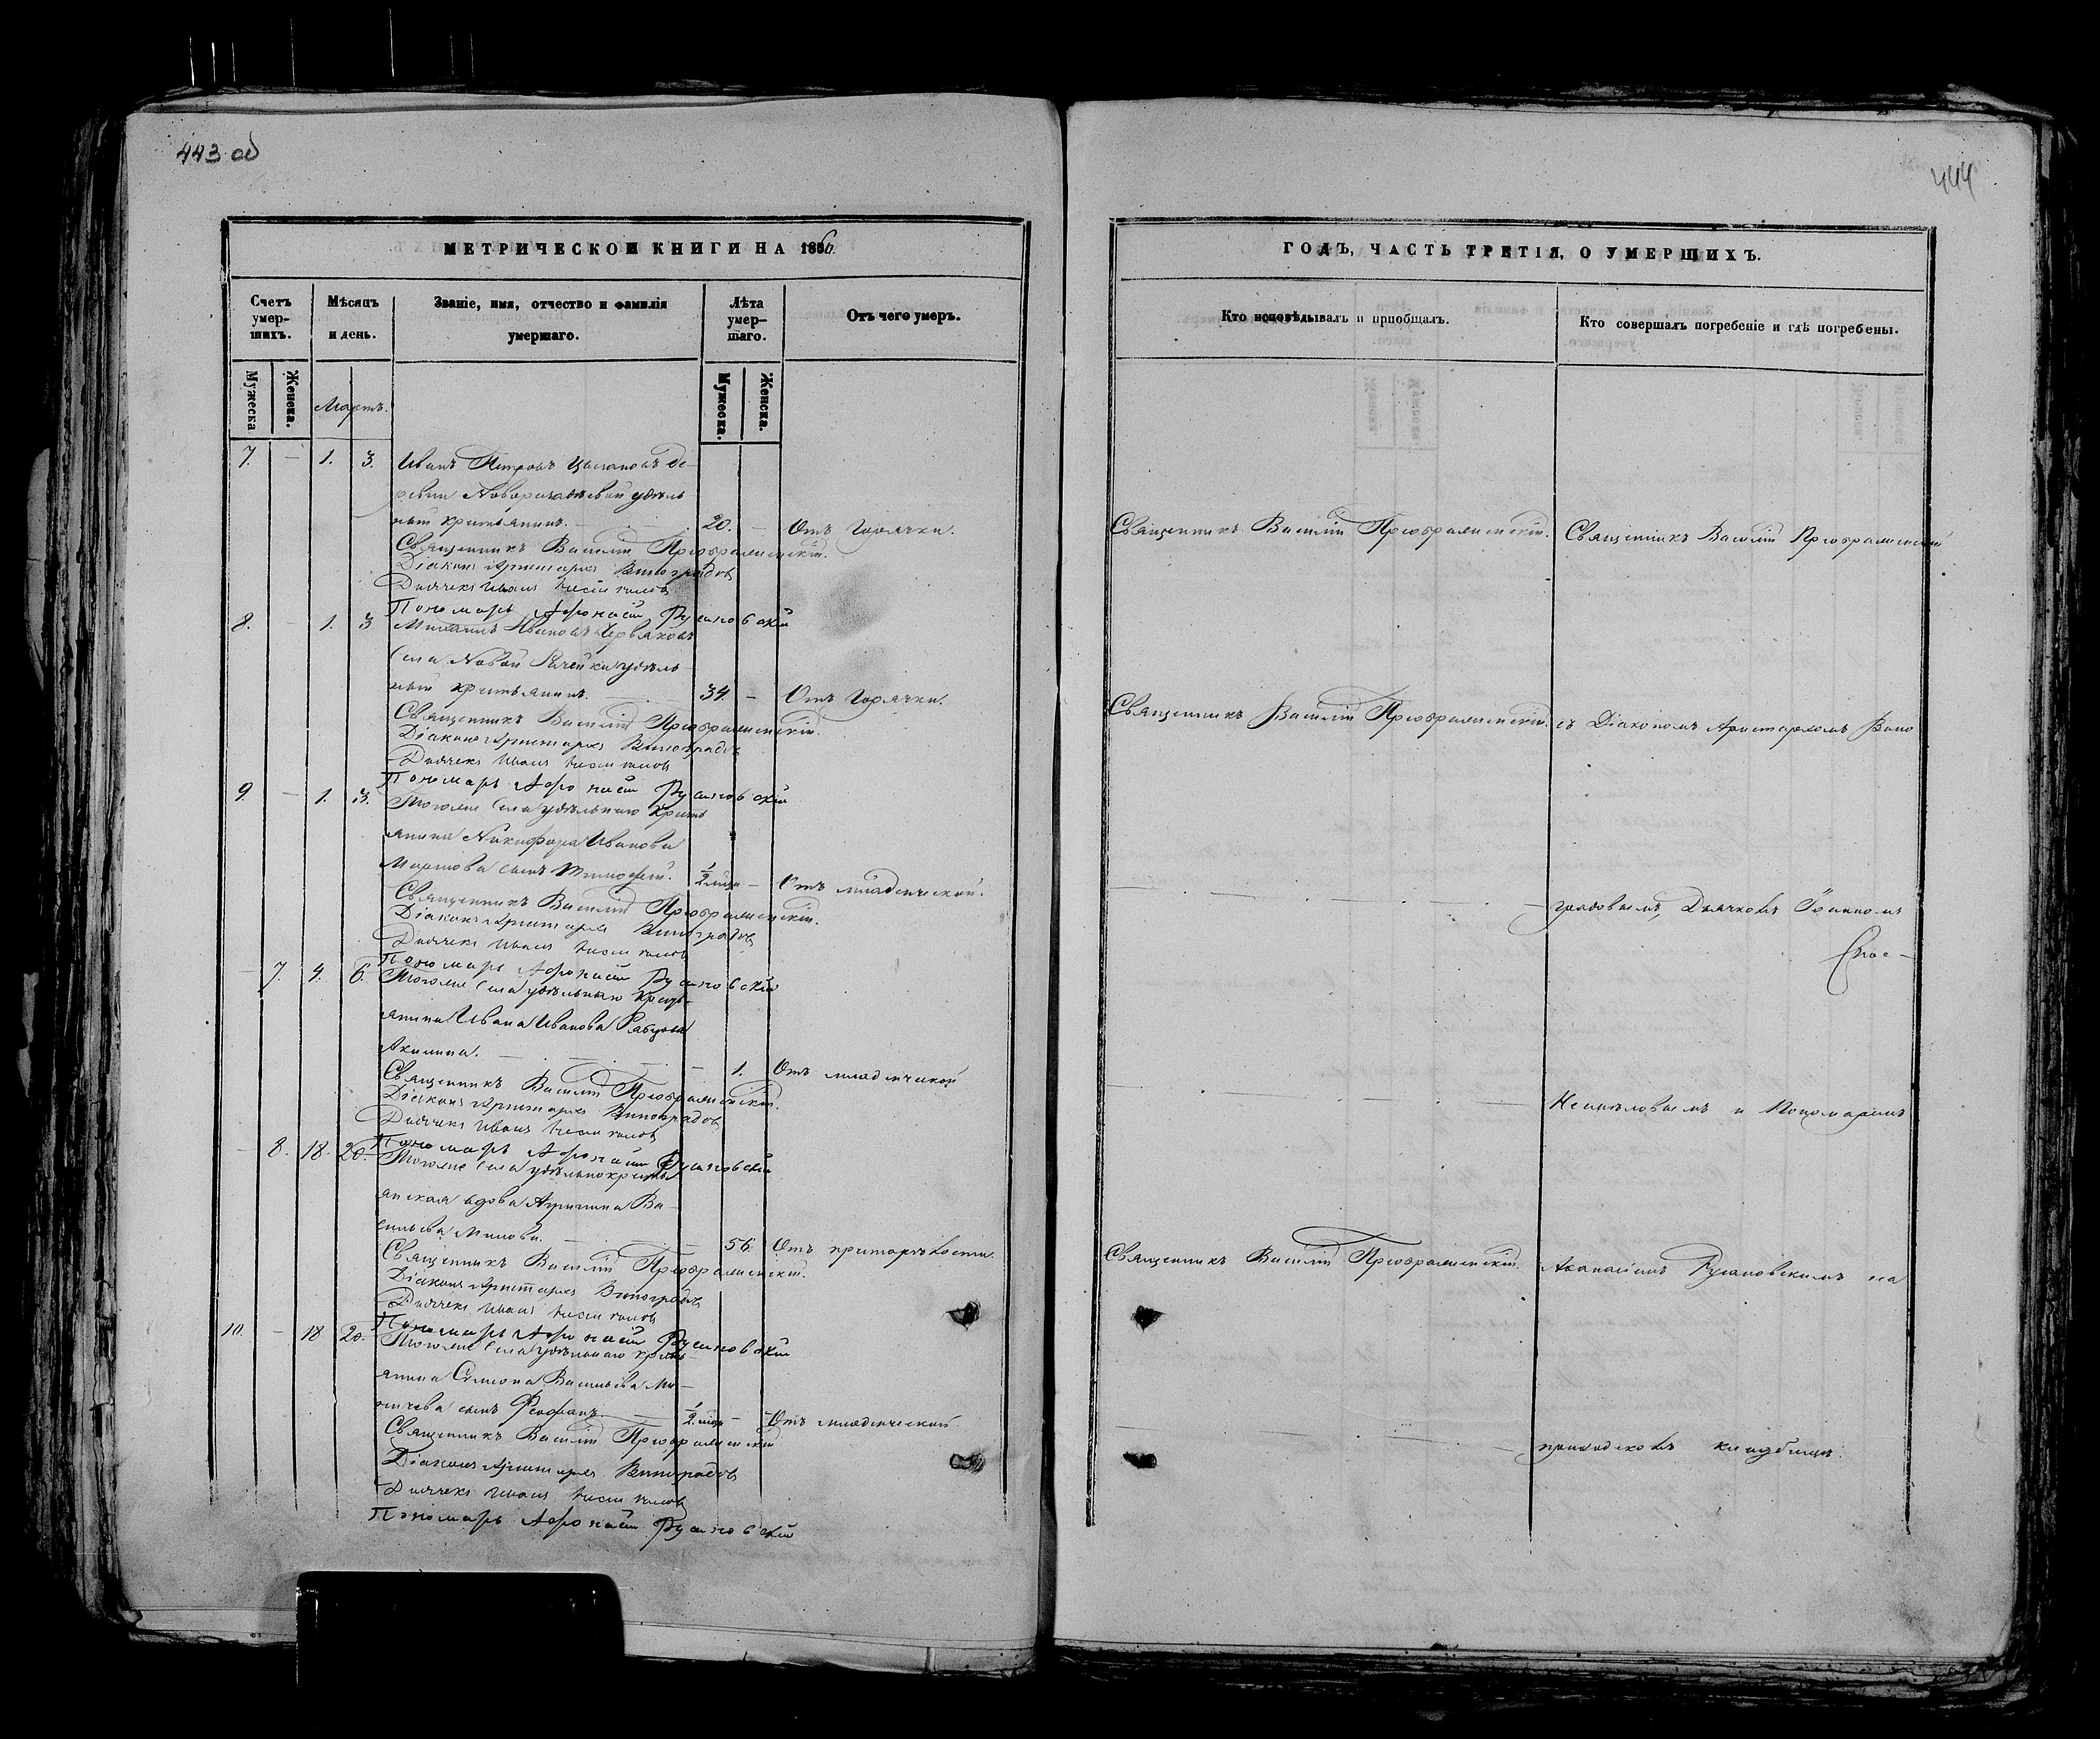 443 об
444
МЕТРИЧЕСКОЙ КНИГИ НА 1856.
Счетъ умер-шихъ.
Мѣсяцъ и день.
Званіе, имя, отчество и фамилія умершаго.
Лѣта умер-шаго.
Отъ чего умеръ.
Мужеска.
Женска.
Мартъ.
Мужеска.
Женска.
7. — 1. 3. Иванъ Петровъ Цыгановъ де-
ревни удѣль
ный крестьянинъ. — 20. — Отъ горячки.
Священникъ Василій Преображенскій.
Діаконъ Аристархъ Виноградовъ
Дьячекъ Иванъ
Пономарь Афонасій Русановскій
8. — 1. 3. Михаилъ Ивановъ Червяковъ
Села Новой Рачейки удѣль-
ный крестьянинъ. — 34 — Отъ горячки.
Священникъ Василій Преображенскій.
Діаконъ Аристархъ Виноградовъ
Дьячекъ Иванъ
Пономарь Афонасій Русановскій
9. — 1. 3. Тогоже Села удѣльнаго кресть
янина Никифора Иванова
Мартова сынъ Тимофей. 1/2 мѣся — Отъ младенческой.
Священникъ Василій Преображенскій.
Діаконъ Аристархъ Виноградовъ
Дьячекъ Иванъ
Пономарь Афонасій Русановскій
— 7. 4. 6. Тогоже Села удѣльнаго кресть-
янина Ивана Иванова
Акилина. — 1. Отъ младенческой
Священникъ Василій Преображенскій.
Діаконъ Аристархъ Виноградовъ
Дьячекъ Иванъ
Пономарь Афонасій Русановскій
— 8. 18. 20. Тогоже Села удѣльнокресть
янская вдова Агрипина Ва-
сильева — 56. Отъ
Священникъ Василій Преображенскій.
Діаконъ Аристархъ Виноградовъ
Дьячекъ Иванъ
Пономарь Афонасій Русановскій
10. — 18 20. Тогоже Села удѣльнаго кресть-
янина Симеона Васильева
сынъ Феофанъ. 1/2 мѣся — Отъ младенческой
Священникъ Василій Преображенскій
Діаконъ Аристархъ Виноградовъ
Дьячекъ Иванъ
Пономарь Афонасій Русановскій
ГОДЪ, ЧАСТЬ ТРЕТІЯ, О УМЕРШИХЪ.
Кто исповѣдывалъ и пріобщалъ.
Кто совершалъ погребеніе и гдѣ погребены.
Священникъ Василій Преображенскій. Священникъ Василій Преображенскій
Священникъ Василій Преображенскій. съ Діакономъ Аристархомъ Вино
градовымъ, Дьячкомъ Іоанномъ
и Пономаремъ
Священникъ Василій Преображенскій. Афанасіемъ Русановскимъ на
приходскомъ кладбищѣ.